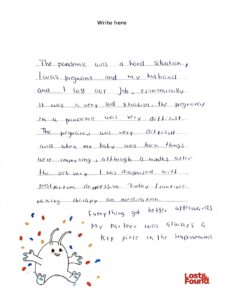 Write here
The pandemic was a hard situation,
I was pregnant and my husband
and I lost our job, economically
it was a very sad situation, the pregnancy
in a pandemic was very difficult
The pregnancy was very difficult
and when my baby was born things
were improving, although 4 months after
the birth I was diagnosed with
postpartum depression. Today I continue
taking therapy and medication
Everything got better afterwards
My partner was always a
Key piece in the improvement
Lost&
Found